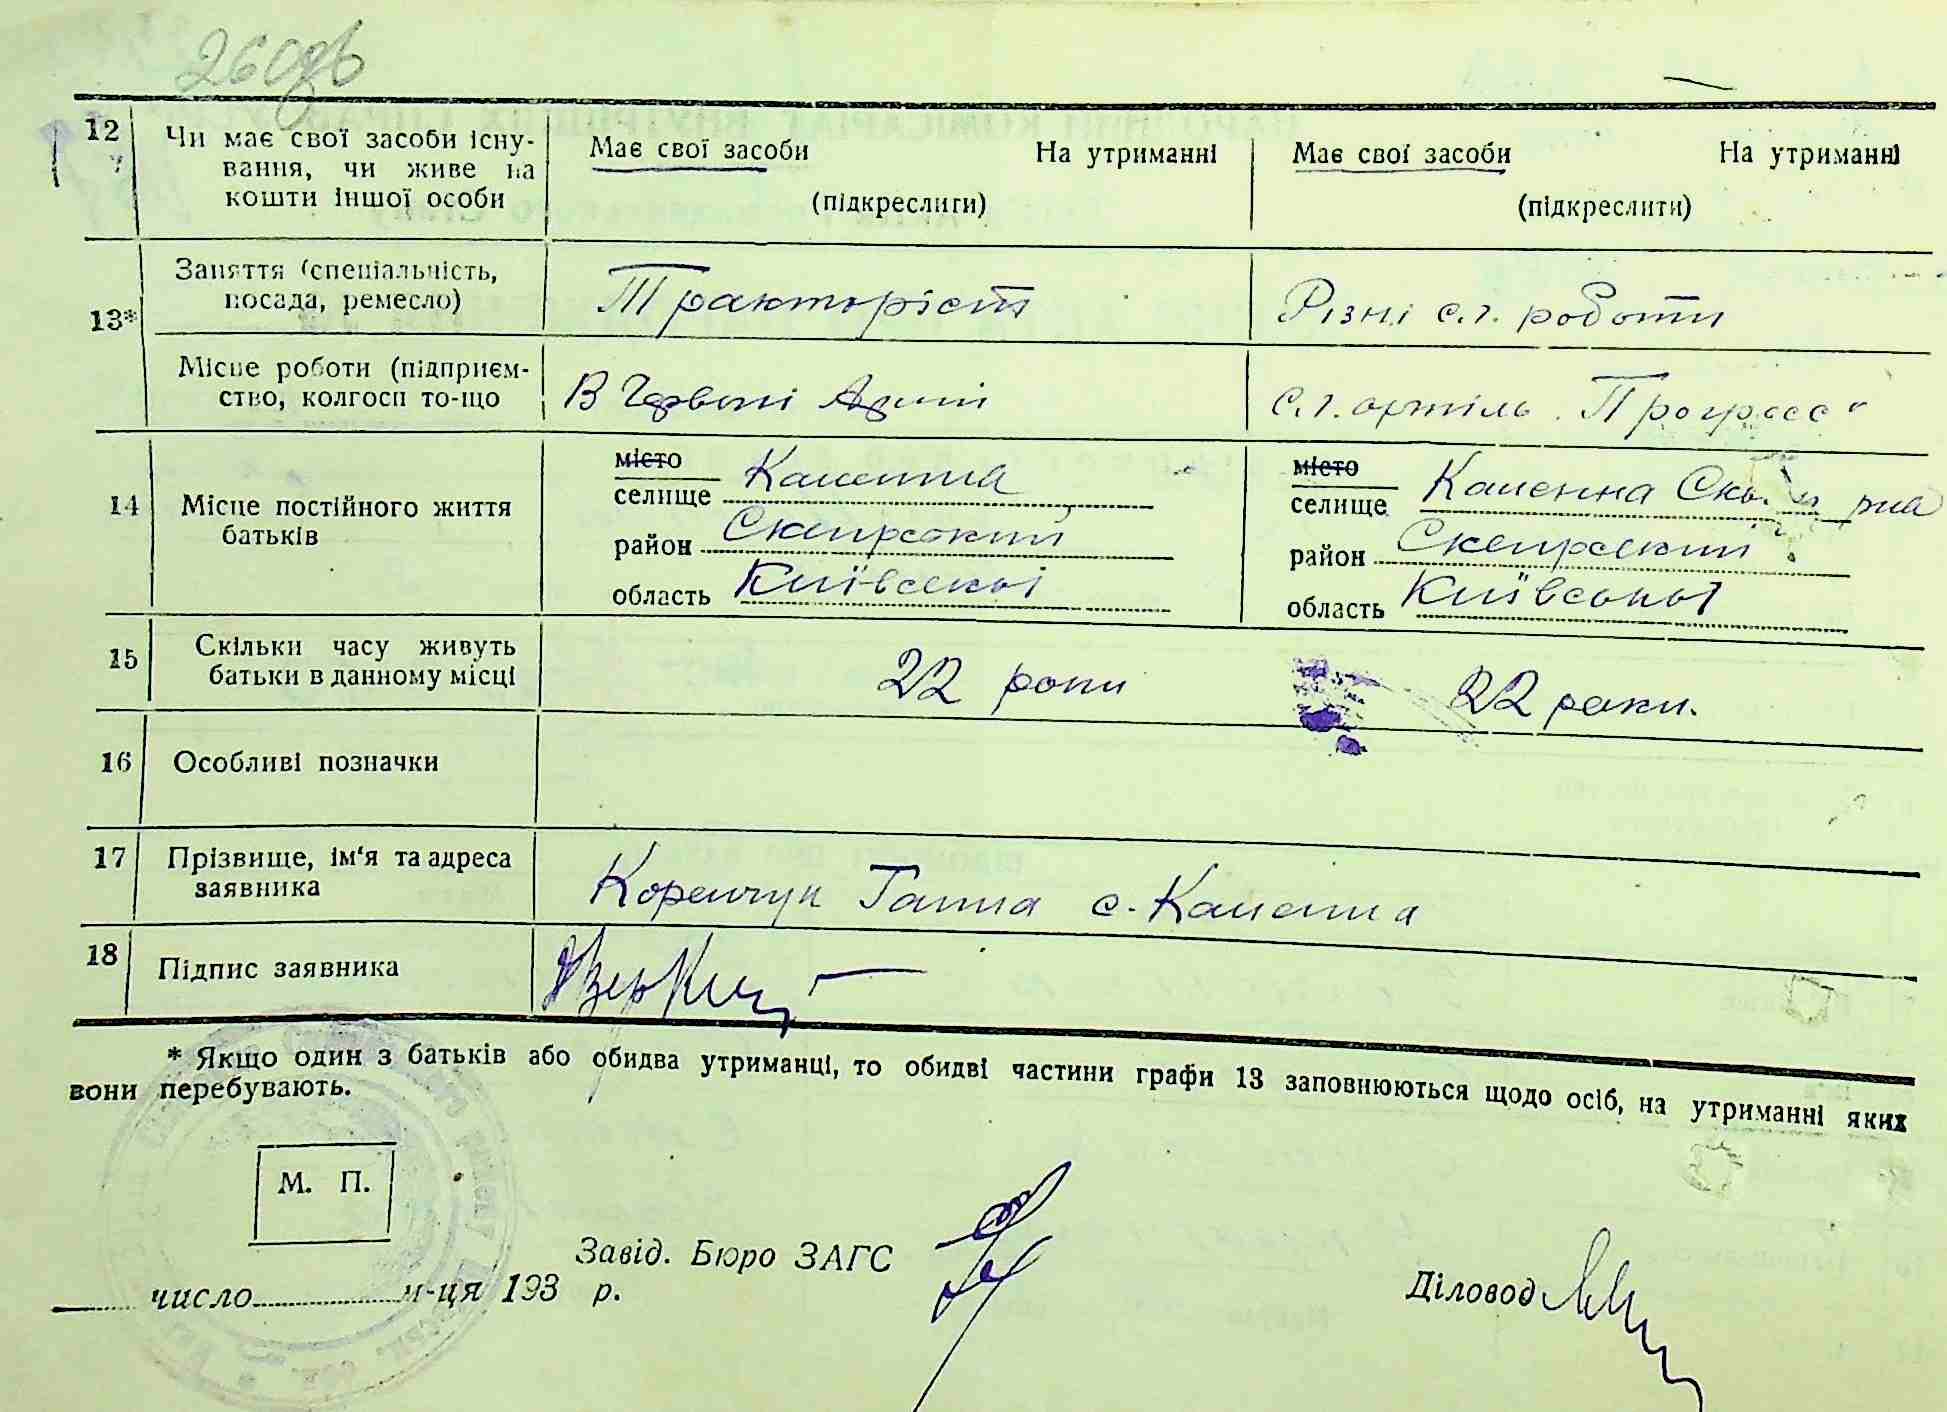 12
Чи має свої засоби існу-
вання, чи живе на
кошти іншої особи
Має свої засоби На утриманні
(підкреслити)
Має свої засоби На утриманні
(підкреслити)
13*
Заняття (спеціальність,
посада, ремесло)
Тракторіст
Різні с.г. роботи
Місце роботи (підприєм-
ство, колгосп то-що
В Червоні Армії
С.г. артіль "Прогресс"
14
Місце постійного життя
батьків
місто
селище Каменна
район Сквирський
область Київської
місто
селище Каменна
район Сквирский
область Київської
15
Скільки часу живуть
батьки в данному місці
22 роки
22 роки.
16
Особливі позначки
17
Прізвище, ім'я та адреса
заявника
Коренчук Ганна с. Каменна
18
Підпис заявника
* Якщо один з батьків або обидва утриманці, то обидві частини графи 13 заповнюються щодо осіб, на утриманні яких
вони перебувають.
М. П.
Завід. Бюро ЗАГС
число м-ця 193 р.
Діловод